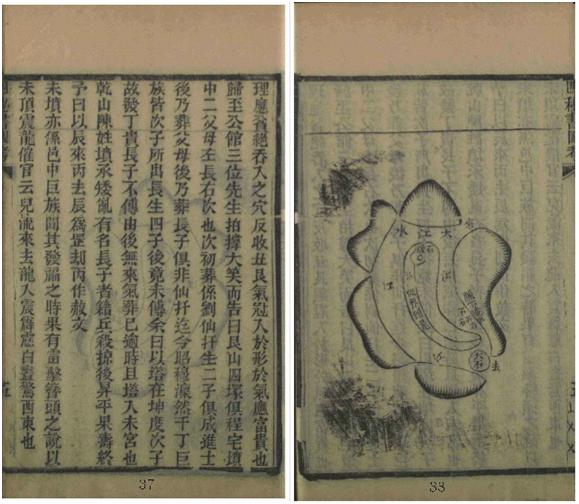 理應貧絕吞入之穴反收丑艮氣冠入於形於氣應富貴也
歸至公館三位先生拍撑大笑而告曰艮山四塚俱程宅墳
中二父母左長右次也次初葬係劉仙扦生二子俱成進士
後乃葬父母後乃葬長子俱非仙扦迄今昭穆溴然千丁巨
族皆次子所出長生四子後竟未傳余曰以塔在坤度次子
故發丁貴長子不傳由後無來氣葬已逾時且塔入未宮也
乾山陳姓墳承矮亂有名長子者籍兵殺掠後昇平果壽終
予曰以辰來丙去辰爲罡刧丙作赦文
未墳亦係邑中巨族聞其發福之時果有雷擊簪頭之說以
未頂震龍催官云兒流來去龍入震霹靂白晝驚西東也
37
大江水
江
江
江
去
33